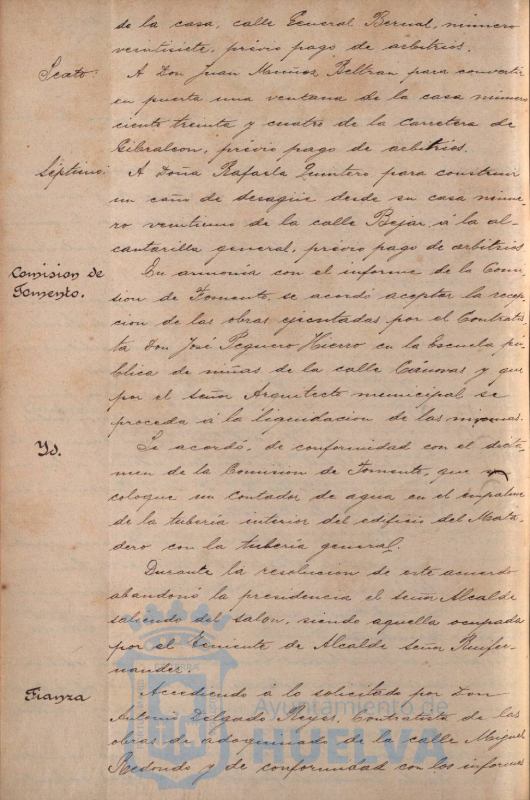 de la casa, calle General Bernal, número
veintisiete, previo pago de arbitrios.
Sexto: A Don Juan Muñoz Beltran, para convertir
en puerta una ventana de la casa número
ciento treinta y cuatro de la carretera de
Gibraleon, previo pago de arbitrios.
Séptimo: A Doña Rafaela Quintero para construir
un caño de desagüe desde su casa núme-
ro veintiuno de la calle Bejar, á la al-
cantarilla general, previo pago de arbitrios.
Comision de Fomento. En armonia con el informe de la Comi-
sion de Fomento, se acordó aceptar la recep-
cion de las obras ejecutadas por el Contratis-
ta Don José Peguero Hierro en la Escuela pú-
blica de niñas de la calle Cánovas y que
por el señor Arquitecto municipal se
proceda á la liquidacion de las mismas.
Yd. Se acordó, de conformidad con el dicta-
men de la Comision de Fomento, que se
coloque un contador de agua en el empalme
de la tuberia interior del edificio del Mata-
dero con la tuberia general.
Durante la resolucion de este acuerdo
abandonó la presidencia el señor Alcalde
saliendo del salon, siendo aquella ocupada
por el Teniente de Alcalde señor
nandez.
Fianza Accediendo á lo solicitado por Don
Antonio Delgado Reyes, Contratista de las
obras de adoquinado de la calle Miguel
Redondo y de conformidad con los informes
Ayuntamiento de
HUELVA